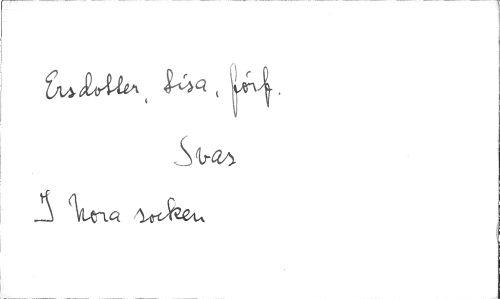 Ersdotter, Lisa, förf.
Svar
I Nora socken